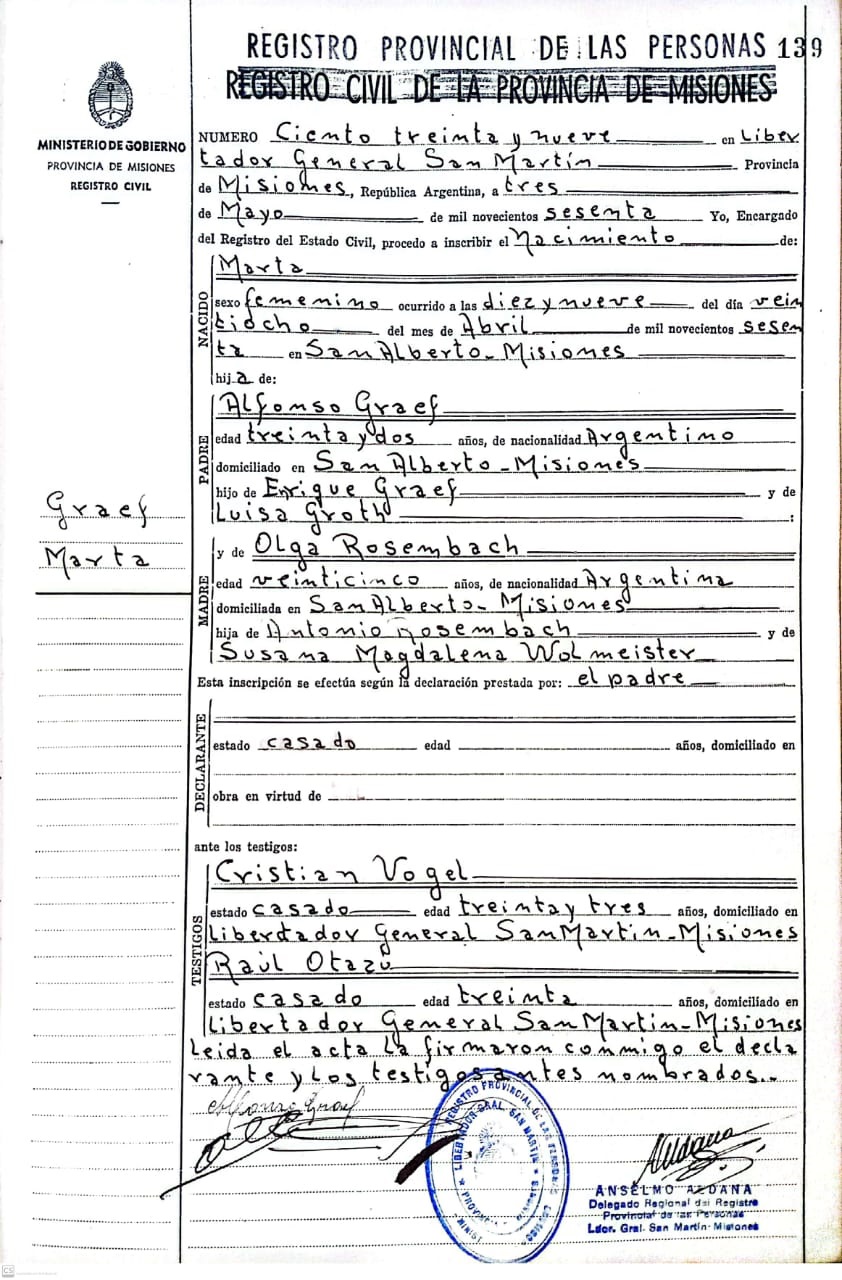 REGISTRO PROVINCIAL DE LAS PERSONAS 139
REGISTRO CIVIL DE LA PROVINCIA DE MISIONES
MINISTERIO DE GOBIERNO
PROVINCIA DE MISIONES
REGISTRO CIVIL
NUMERO Ciento treinta y nueve en Liber
tador General San Martín Provincia
de Misiones, República Argentina, a tres
de Mayo de mil novecientos sesenta Yo, Encargado
del Registro del Estado Civil, procedo a inscribir el Nacimiento de:
NACIDO
Marta
sexo femenino ocurrido a las diez y nueve del día vein
tiocho del mes de Abril de mil novecientos sesen
ta en San Alberto - Misiones
hija de:
PADRE
Alfonso Graef
edad treinta y dos años, de nacionalidad Argentino
domiciliado en San Alberto - Misiones
hijo de Enrique Graef y de
Luisa Groth :
Graef
Marta
MADRE
y de Olga Rosembach
edad veinticinco años, de nacionalidad Argentina
domiciliada en San Alberto - Misiones
hija de Antonio Rosembach y de
Susana Magdalena Wolmeister
Esta inscripción se efectúa según la declaración prestada por: el padre
DECLARANTE
estado casado edad años, domiciliado en
obra en virtud de
ante los testigos:
TESTIGOS
Cristian Vogel
estado casado edad treinta y tres años, domiciliado en
Libertador General San Martin - Misiones
Raúl Otazú
estado casado edad treinta años, domiciliado en
Libertador General San Martin - Misiones
Leida el acta la firmaron conmigo el decla
rante y los testigos antes nombrados..
Alfonso Graef
REGISTRO PROVINCIAL DE LAS PERSONAS
LIBERTADOR GRAL. SAN MARTIN
Aldana
ANSELMO ALDANA
Delegado Regional del Registro
Provincial de las Personas
Ldor. Gral. San Martín - Misiones
CS